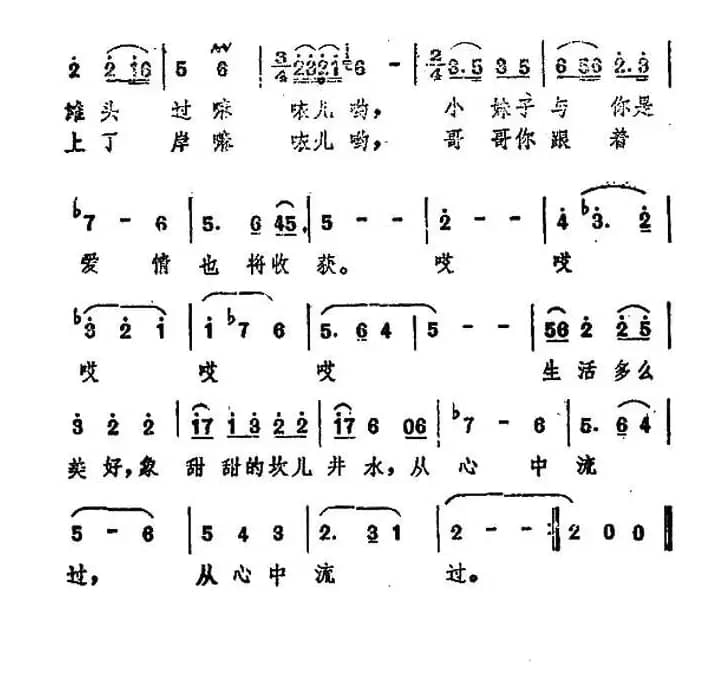 2 2 1 6 | 5 6 | 3/4 2 3 2 1 6 - | 2/4 3. 5 3 5 | 6 5 6 2. 3 |
堆头 过嘛 儿哟, 小妹子与 你是
上了 岸嘛 儿哟, 哥哥你跟 着
♭7 - 6 | 5. 6 45. | 5 - - | 2 - - | 4 ♭3. 2 |
爱 情也将收获。 哎 哎
♭3 2 1 | 1 ♭7 6 | 5. 6 4 | 5 - - | 56 2 2 5 |
哎 哎 哎 生活多么
3 2 2 | 17 1 3 2 2 | 17 6 06 | ♭7 - 6 | 5. 6 4 |
美好,象 甜甜的坎儿井水,从心中流
5 - 6 | 5 4 3 | 2. 3 1 | 2 - - :| 2 0 0 ||
过, 从心中流 过。